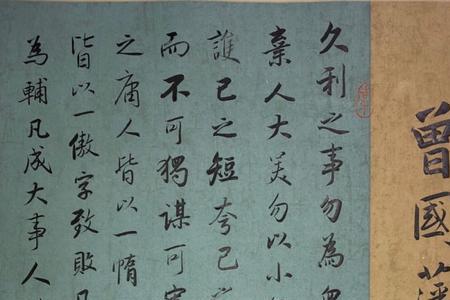 曾國藩
久利之事勿為眾
棄人大美勿以小
護己之短夸己之
而不可獨謀可寡
之庸人皆以一惰
皆以一傲字致敗凡
為輔凡成大事人